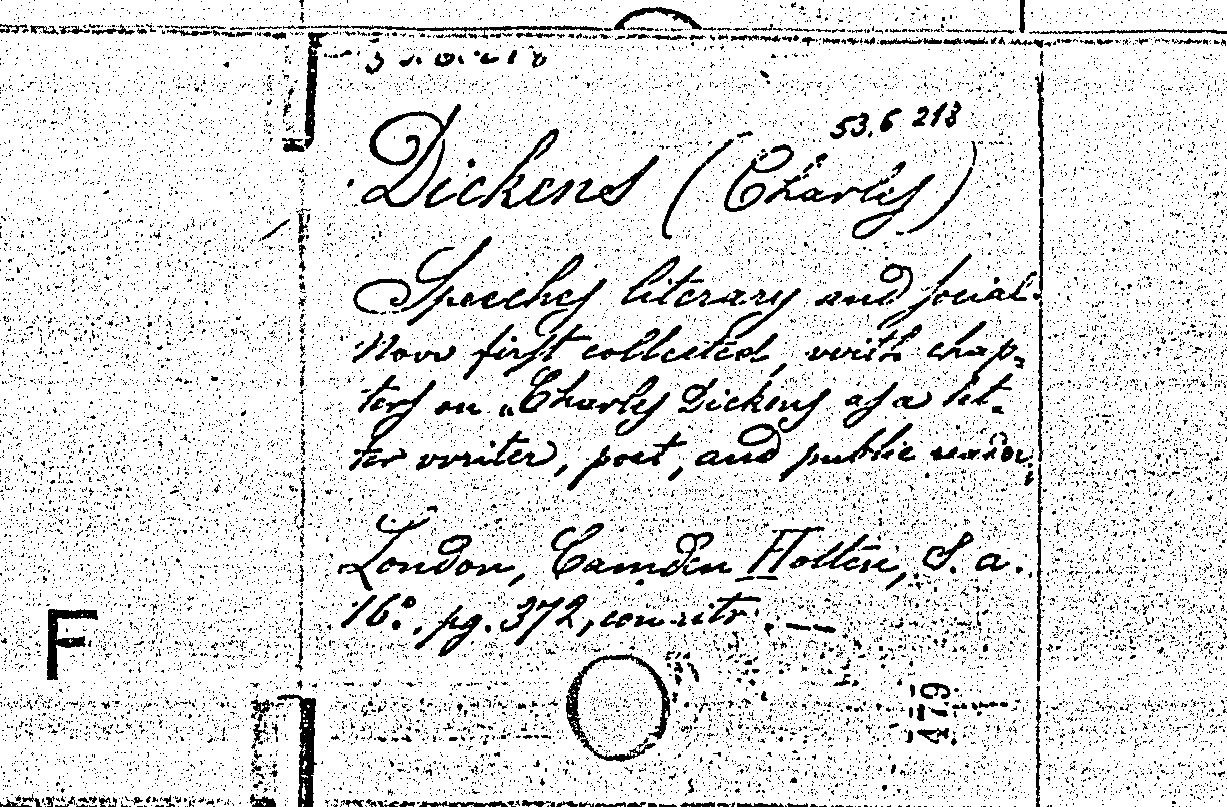 53.6 213
Dickens (Charles)
Speeches literary and social.
Now first collected, with chap-
ters on „Charles Dickens as a let-
ter writer, poet, and public reader.
London, Camden Hotten, S. a.
16°. pg. 372, con ritr. —
F
479